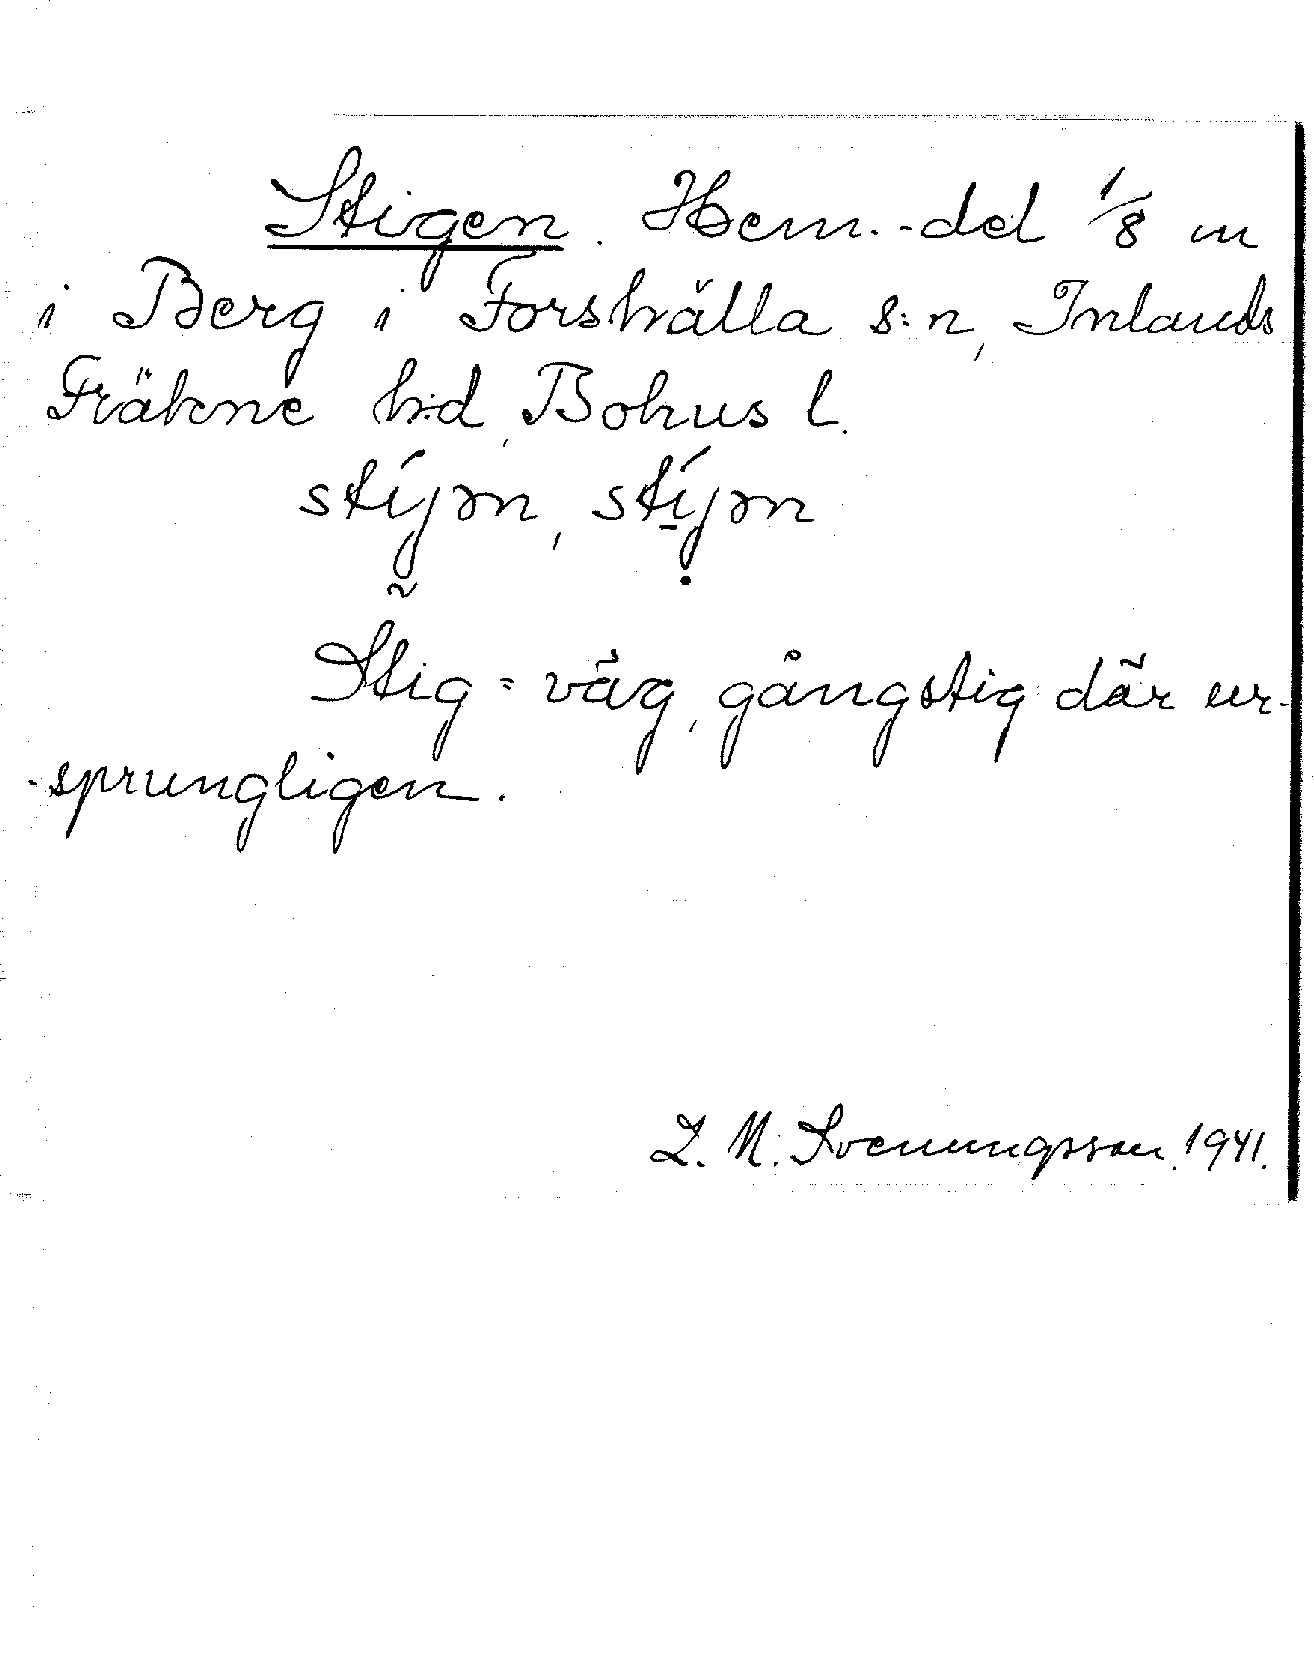 Stigen. Hem.-del 1/8 m
i Berg i Forshälla s:n, Inlands
Fräkne h:d, Bohus l.
stíjən, stíjən
Stig = väg, gångstig där ur-
-sprungligen.
L. M. Svenungsson. 1941.